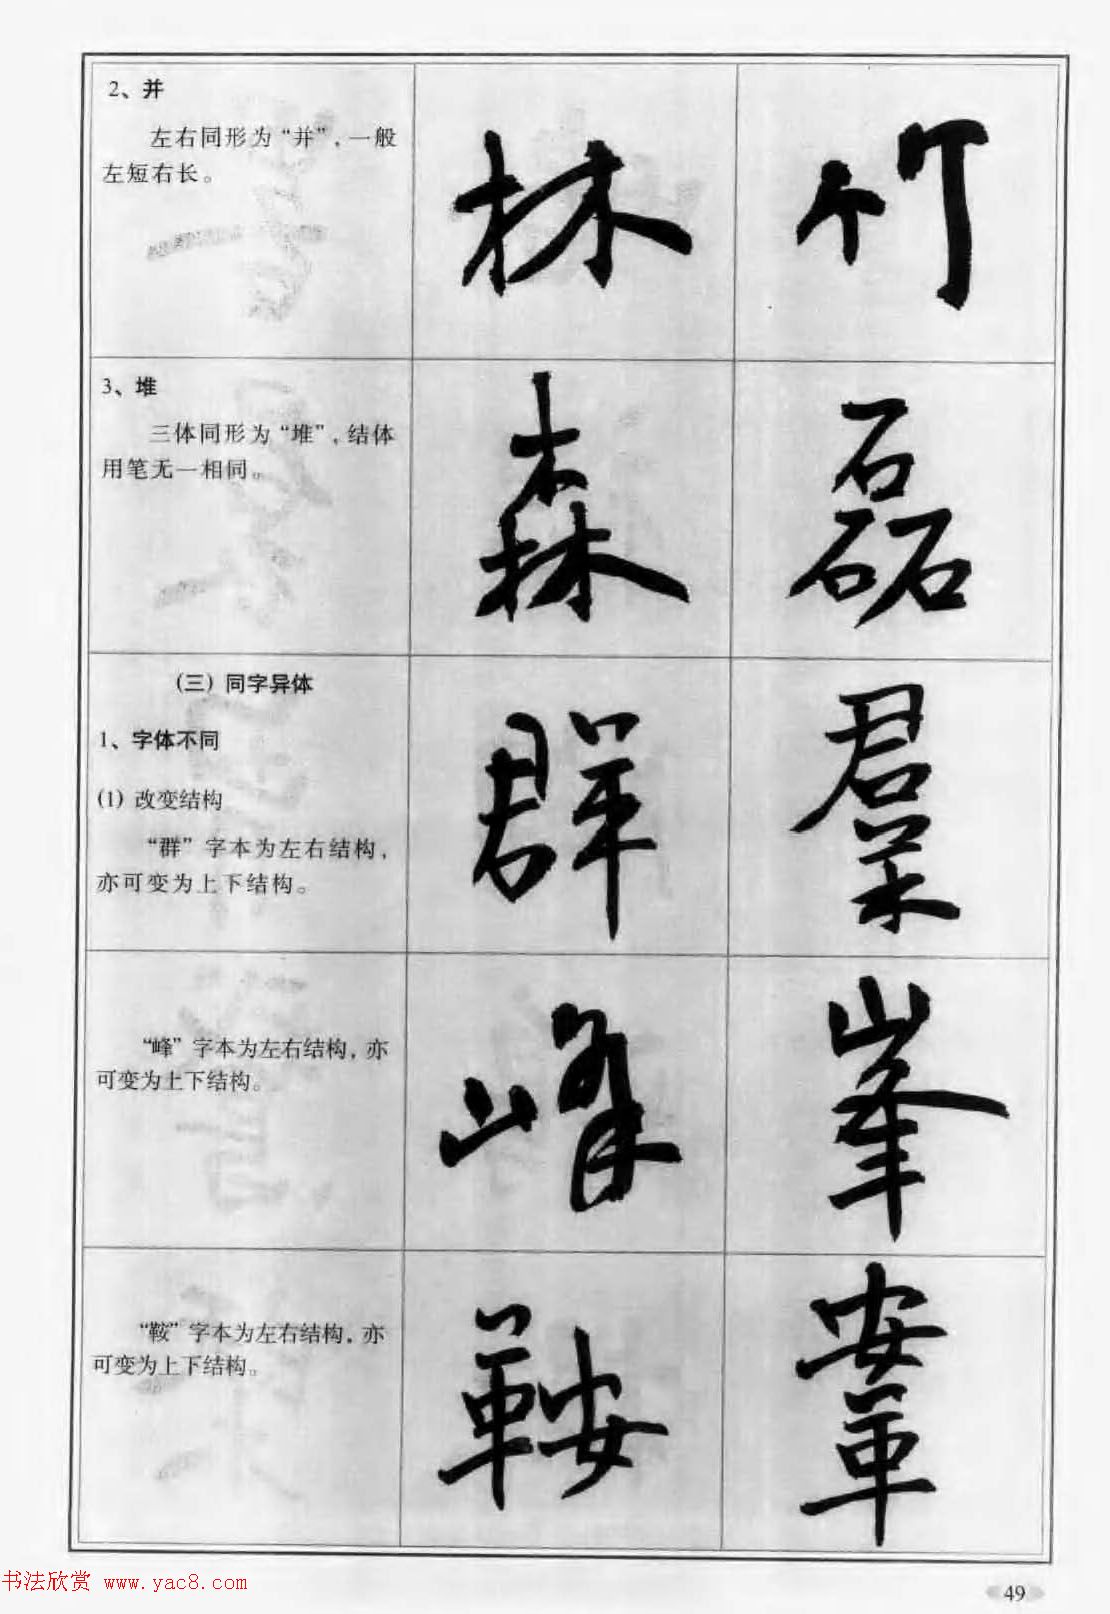 2、并
左右同形为“并”，一般
左短右长。
林
竹
3、堆
三体同形为“堆”，结体
用笔无一相同。
森
磊
（三）同字异体
1、字体不同
(1) 改变结构
“群”字本为左右结构，
亦可变为上下结构。
群
羣
“峰”字本为左右结构，亦
可变为上下结构。
峰
峯
“鞍”字本为左右结构，亦
可变为上下结构。
鞍
鞌
书法欣赏 www.yac8.com
49